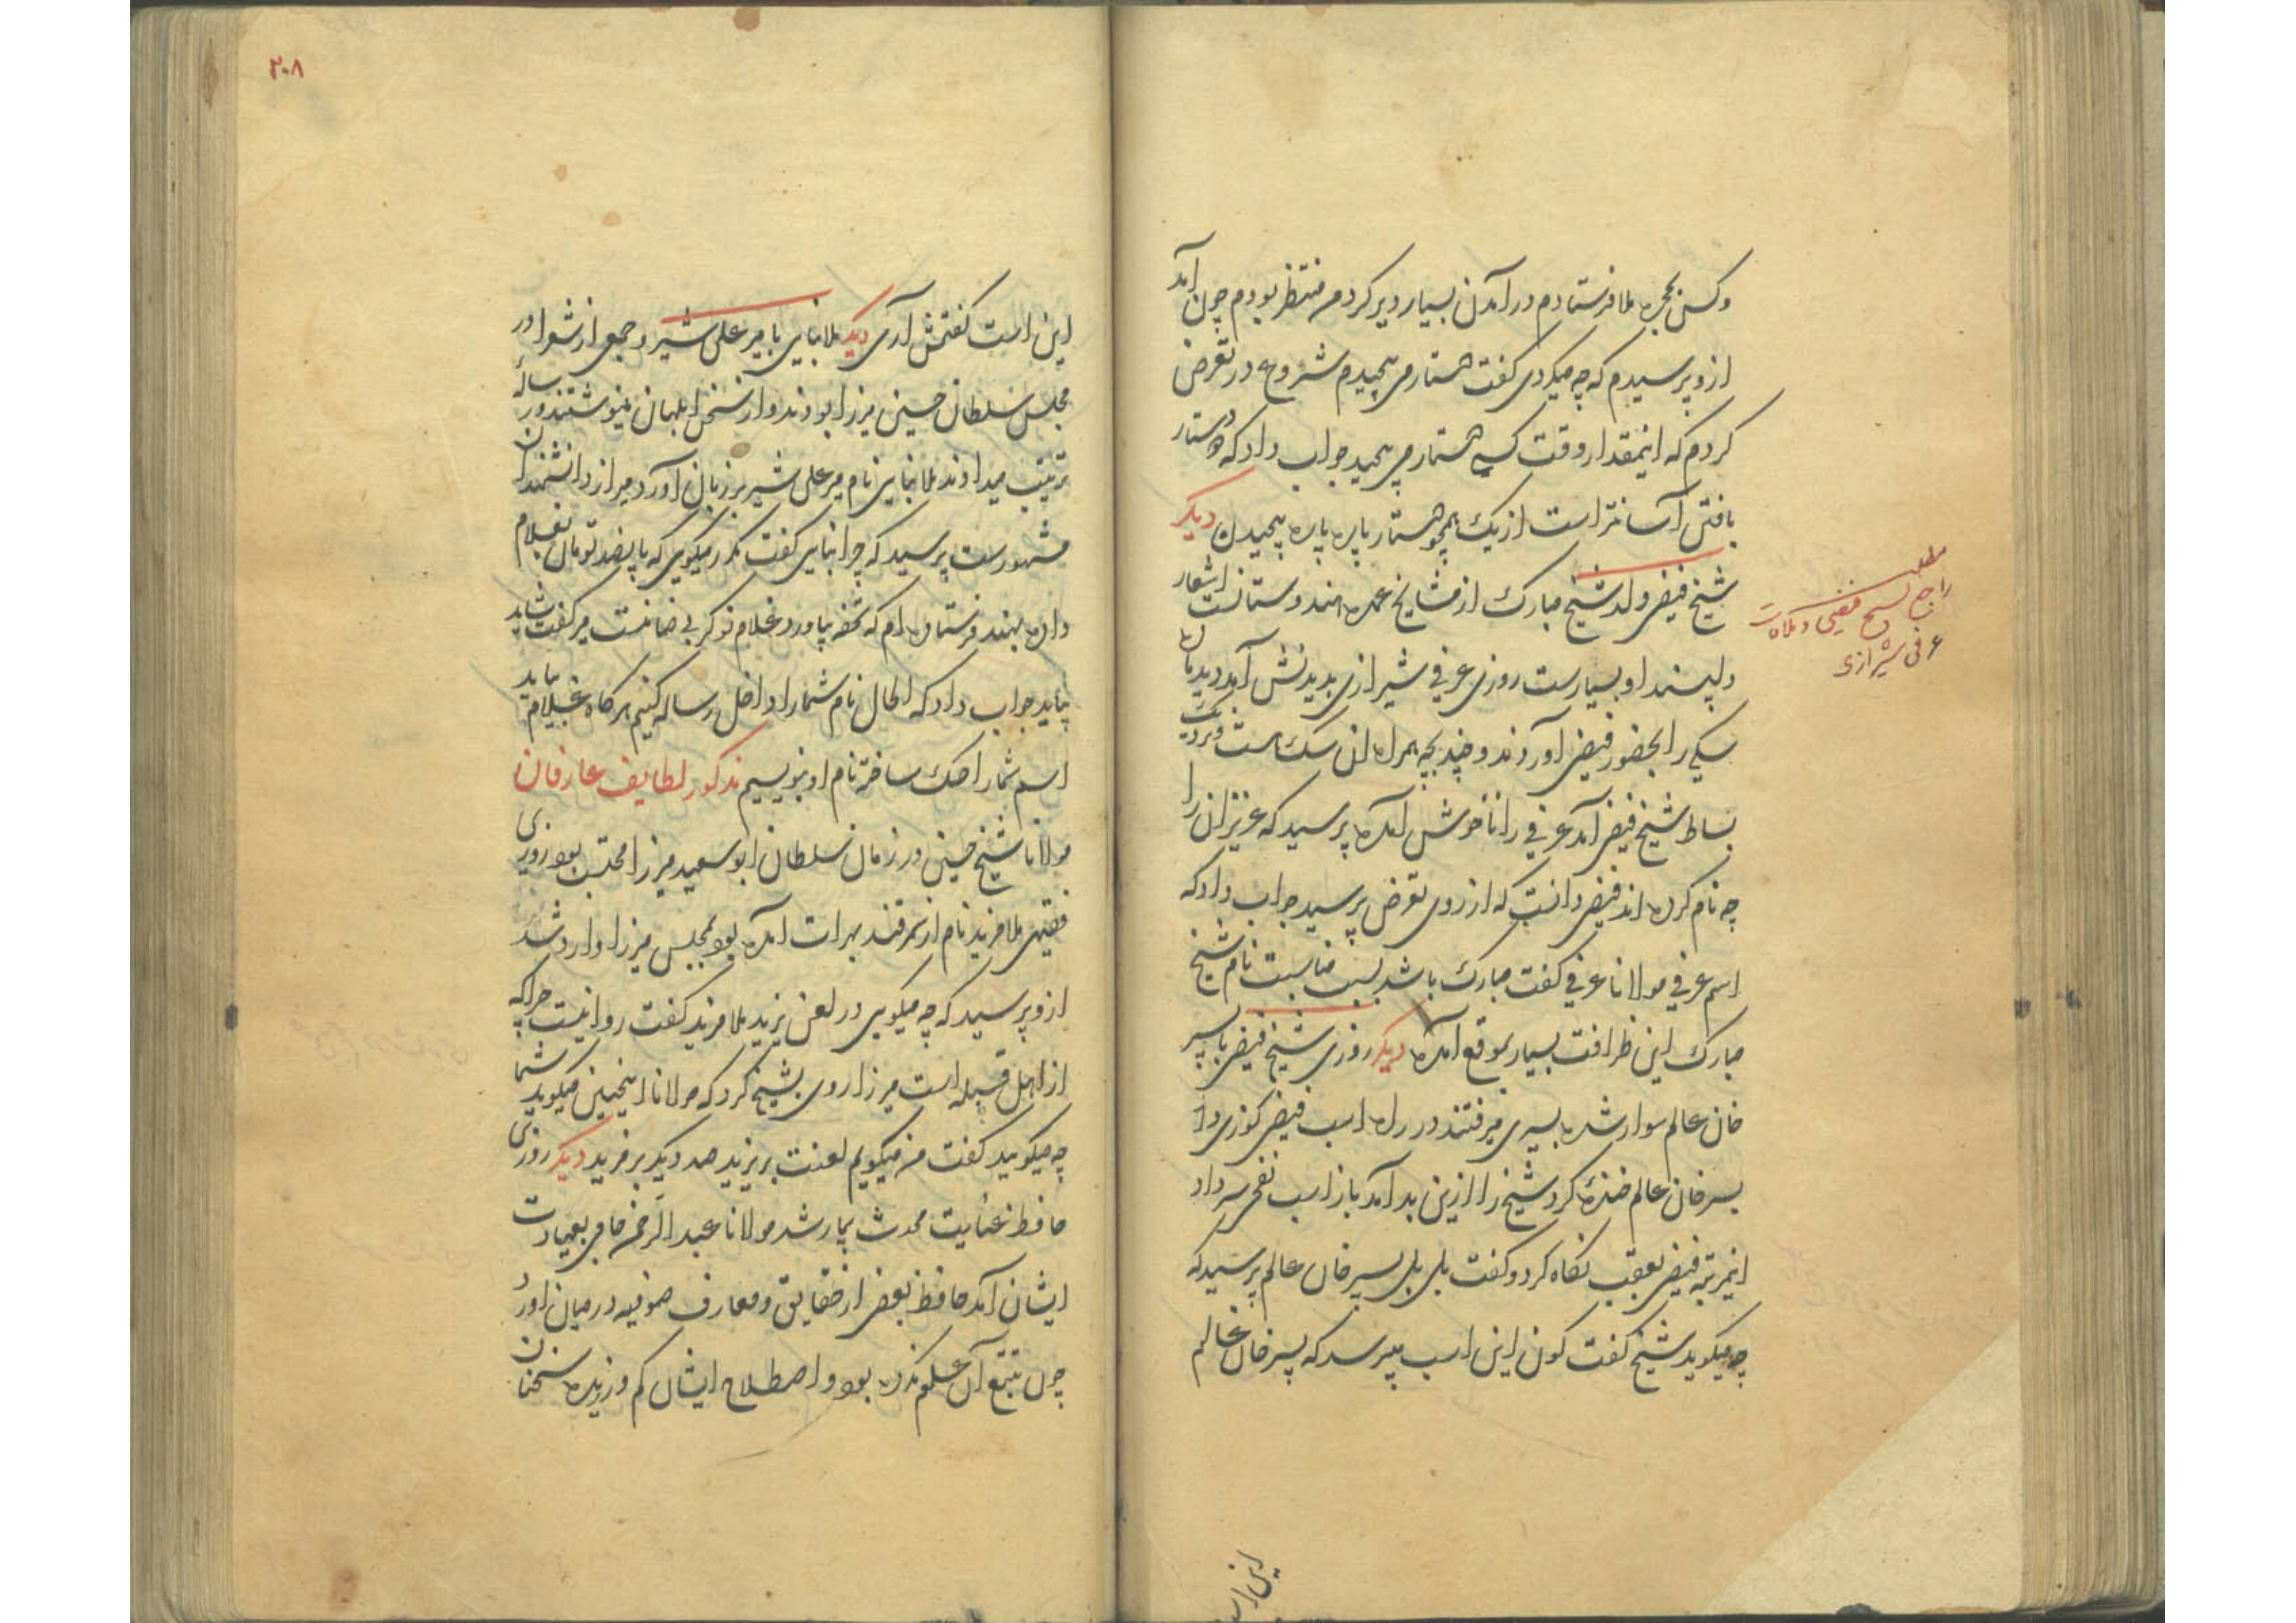 وکسی بحجره ملا فرستادم در آمدن بسیار دیر کرد من منتظر بودم چون آمد
ازو پرسیدم که چه میکردی گفت دستار می پیچیدم شروع در تعرض
کردم که اینمقدار وقت کسی دستار می پیچید جواب داد که دستار
بافتن آسانتر است از یک همچو دستار پاره پاره پیچیدن دیکر
شیخ فیضی ولد شیخ مبارک از مشایخ عمده هندوستانست اشعار
دلپسند او بسیارست روزی عرفی شیرازی بدیدنش آمد دید
سکی را بحضور فیضی آوردند و چند بچه همراه آن سک است
بساط شیخ فیضی آمد عرفی را ناخوش آمده پرسید که عزیزان را
چه نام کرده اند فیضی دانست که از روی تعرض پرسید جواب داد که
اسم عرفی مولانا عرفی گفت مبارک باشد بسبب مناسبت نام شیخ
مبارک این ظرافت بسیار بموقع آمده دیکر روزی شیخ فیضی با پسر
خان عالم سوار شده بسیری میرفتند در راه اسب فیضی کوزی داد
پسر خان عالم خنده کرد شیخ را ازین بد آمد باز اسب نفخی سر داد
اینمرتبه فیضی بعقب نکاه کرد و گفت بلی بلی پسر خان عالم پرسید که
چه میکوید شیخ گفت کون این اسب میپرسد که پسر خان عالم
مطلب
راجع شیخ فیضی و ملاقات
عرفی شیرازی
این است
۲۰۸
این است گفتمش آری دیکر ملا بنایی با میر علی شیر و جمعی از شعرا در
مجلس سلطان حسین میرزا بودند و از سخن ابلهان مینوشتند و رساله
ترتیب میدادند ملا بنایی نام میر علی شیر بر زبان آورد میر از دانشمندان
مشهورست پرسید که چرا بنایی گفت مکرر میکویی که پانصد تومان بغلام
داده بهند فرستاده ام که تحفه بیاورد و غلام نوکر بی ضامنست میر گفت شاید
بیاید جواب داد که الحال نام شما را داخل رساله کنیم هر کاه غلام بیاید
اسم شما را حک ساخته نام او بنویسیم مذکور لطایف عارفان
مولانا شیخ حسین در زمان سلطان ابو سعید میرزا محتسب بود روزی
فقیهی ملا فرید نام از سمرقند بهرات آمده بود بمجلس میرزا وارد شد
ازو پرسید که چه میکویی در لعن یزید ملا فرید گفت روا نیست چرا که
از اهل قبله است میرزا روی بشیخ کرد که مولانا اینچنین میکوید شما
چه میکویید گفت من میکویم لعنت بر یزید صد دیکر بر فرید دیکر روزی
حافظ عنایت محدث بیمار شد مولانا عبد الرحمن جامی بعیادت
ایشان آمد حافظ بعضی از حقایق و معارف صوفیه در میان آورد
چون تتبع آن علم نکرده بود و اصطلاح ایشان کم ورزیده سخنان